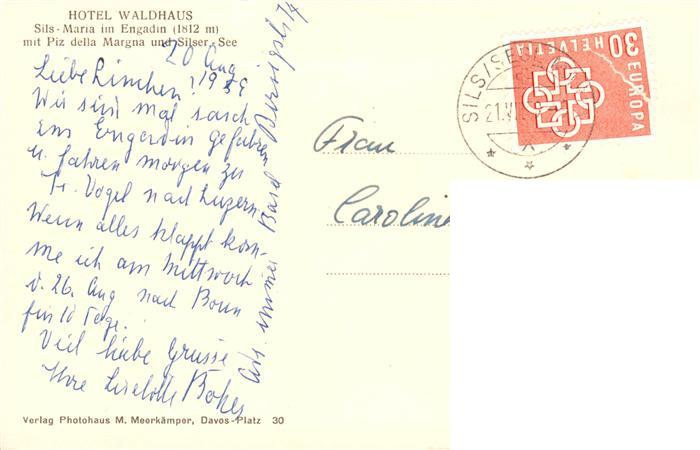 HOTEL WALDHAUS
Sils-Maria im Engadin (1812 m)
mit Piz della Margna und Silser-See
20 Aug
1959
Liebe Linchen!
Wir sind mal rasch
ins Engadin gefahren
u. fahren morgen zu
Fr. Vogel nach Luzern.
Wenn alles klappt kom-
me ich am Mittwoch
d. 26. Aug nach Bonn
für 10 Tage.
Viel liebe Grüsse
Ihre Liselotte
immer Basel
Verlag Photohaus M. Meerkämper, Davos-Platz 30
Frau
Caroline
SILS/SEGL
21.VI
HELVETIA
30
EUROPA